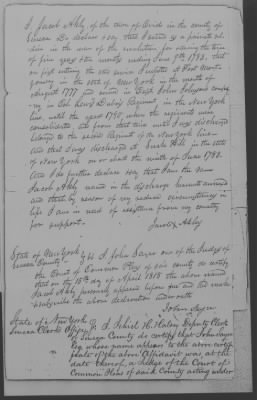 I, Jacob Ably of the town of Ovid in the county of
Seneca Do declare & say that I served as a private sol-
dier in the war of the revolution for during the term
of five years ten months ending June 9th 1783, that
on first entering the said service I enlisted at Fort Mont-
gomery in the state of New York in the month of
August 1777 and served in Capt John Johnson's compa-
ny in Col Lewis Dubois Regiment in the New York
line, until the year 1780 when the regiments were
consolidated, and from that time until I was discharged
belonged to the second Regiment of the New York line
and that I was discharged at Snake Hill in the state
of New York on or about the ninth of June 1783.
And I do further declare & say, that I am the same
Jacob Ably named in the discharge hereunto annexed
and that by reason of my reduced circumstances in
life I am in need of assistance from my country
for support.
Jacob Ably
State of New York
Seneca County ss I John Sayre one of the Judges of
the Court of Common Pleas of said county do certify
that on the 15th day of April 1818 the above named
Jacob Ably personally appeared before me and did make
the above declaration under oath
John Sayre
State of New York
Seneca Clerk's Office ss I, Halton Deputy Clerk
of Seneca County do certify that John Sayre
Esq whose name appears to the above certifi-
cate of the above Affidavit was at the
date thereof, a Judge of the Court of
Common Pleas of said County acting under